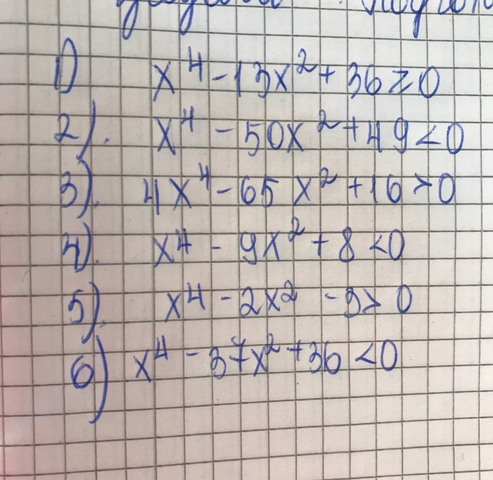 1) x⁴ - 13x² + 36 ≥ 0
2). x⁴ - 50x² + 49 < 0
3). 4x⁴ - 65x² + 16 > 0
4). x⁴ - 9x² + 8 < 0
5). x⁴ - 2x² - 3 > 0
6) x⁴ - 37x² + 36 < 0